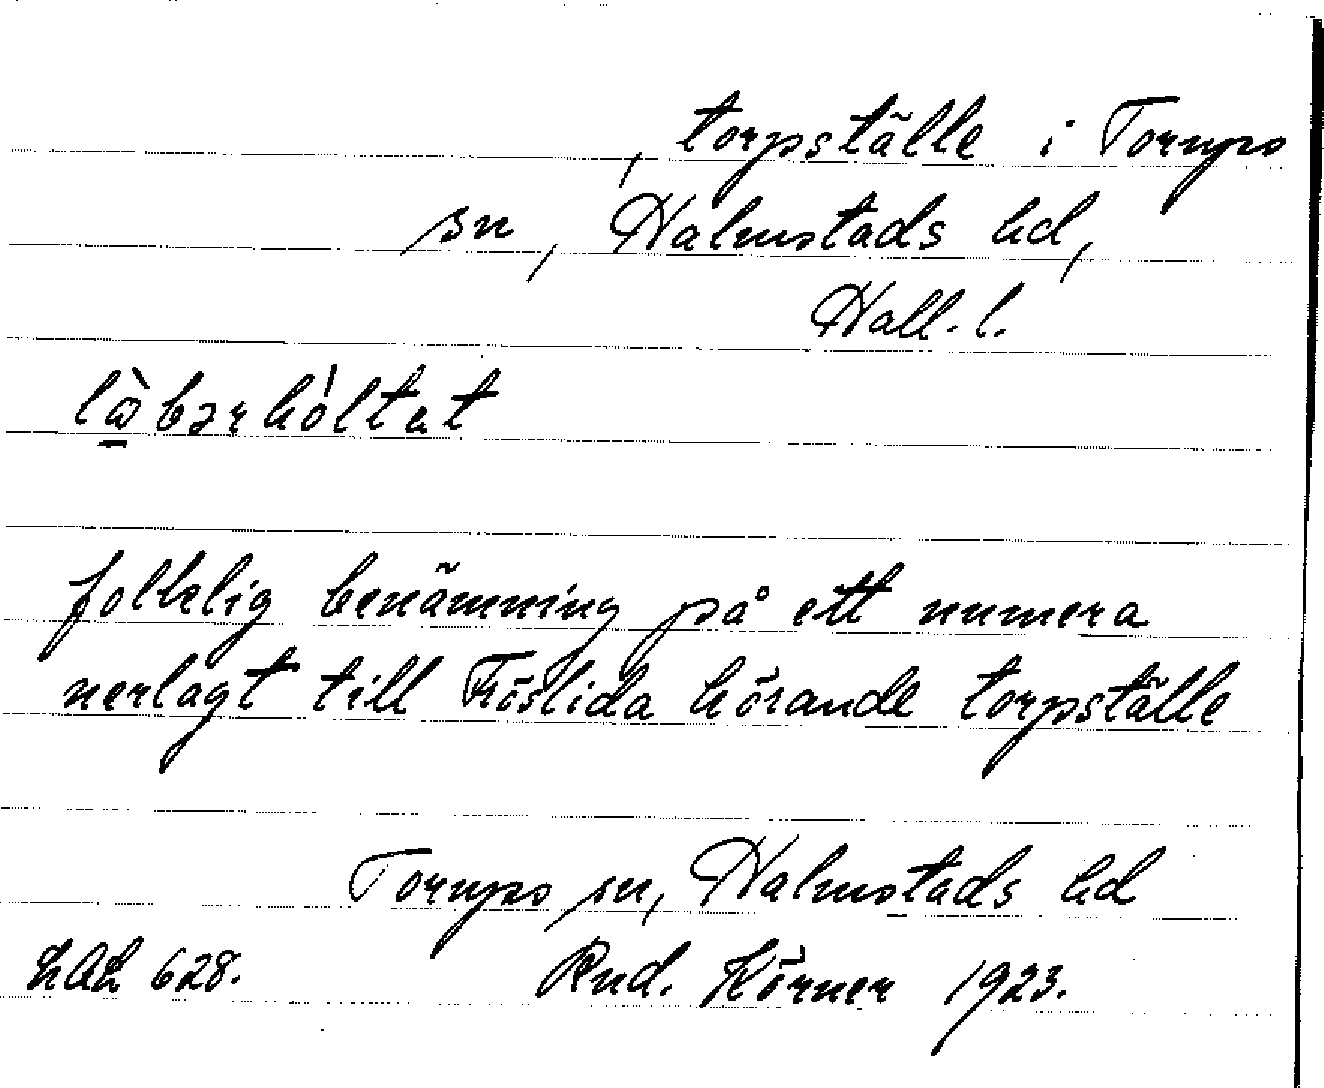 , torpställe i Tornps
sn, Halmstads hd,
Hall. l.
folkelig benämning på ett numera
nerlagt till Fröslida hörande torpställe
Tornps sn, Halmstads hd
LAL 628. Rud. Körner 1923.